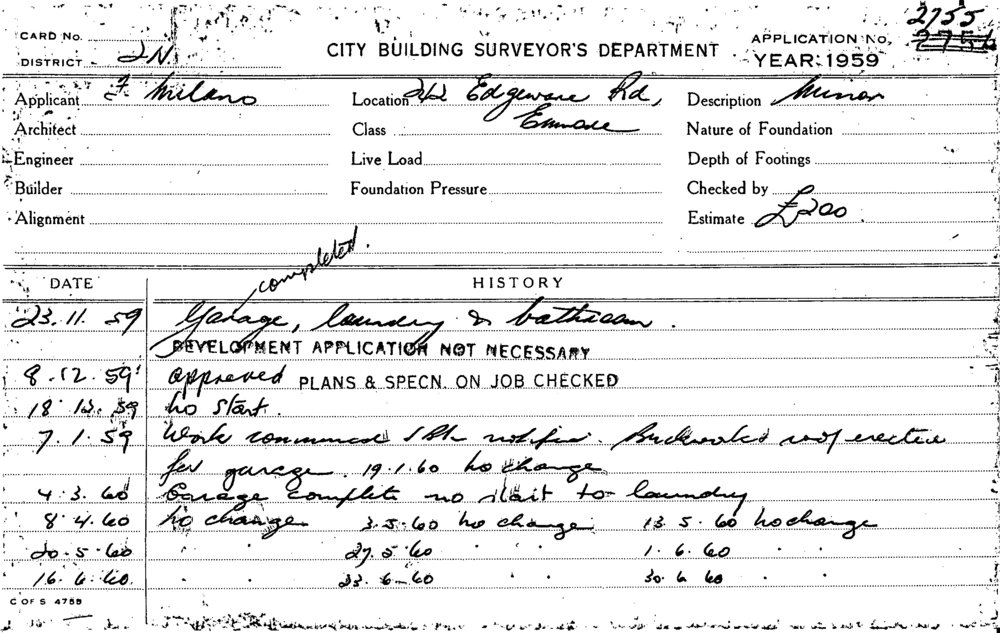 2755
CARD No. APPLICATION No. 2756
DISTRICT 2N. CITY BUILDING SURVEYOR'S DEPARTMENT YEAR: 1959
Applicant F. Milano Location 242 Edgeware Rd, Description Minor
Architect Class Enmore Nature of Foundation
Engineer Live Load Depth of Footings
Builder Foundation Pressure Checked by
Alignment Estimate £200
completed.
DATE HISTORY
23. 11. 59 Garage, laundry & bathroom.
DEVELOPMENT APPLICATION NOT NECESSARY
8. 12. 59 approved PLANS & SPECN. ON JOB CHECKED
18. 12. 59 No start.
7. 1. 59 Work commenced Brickwork roof erected
for garage. 19.1.60 No change
4. 3. 60 Garage complete no start to laundry
8. 4. 60 No change 3. 5. 60 No change 13. 5. 60 No change
20. 5. 60 " " 27. 5. 60 " " 1. 6. 60 " "
16. 6. 60. " " 23. 6. 60 " " 30. 6. 60 " "
C OF S 4755